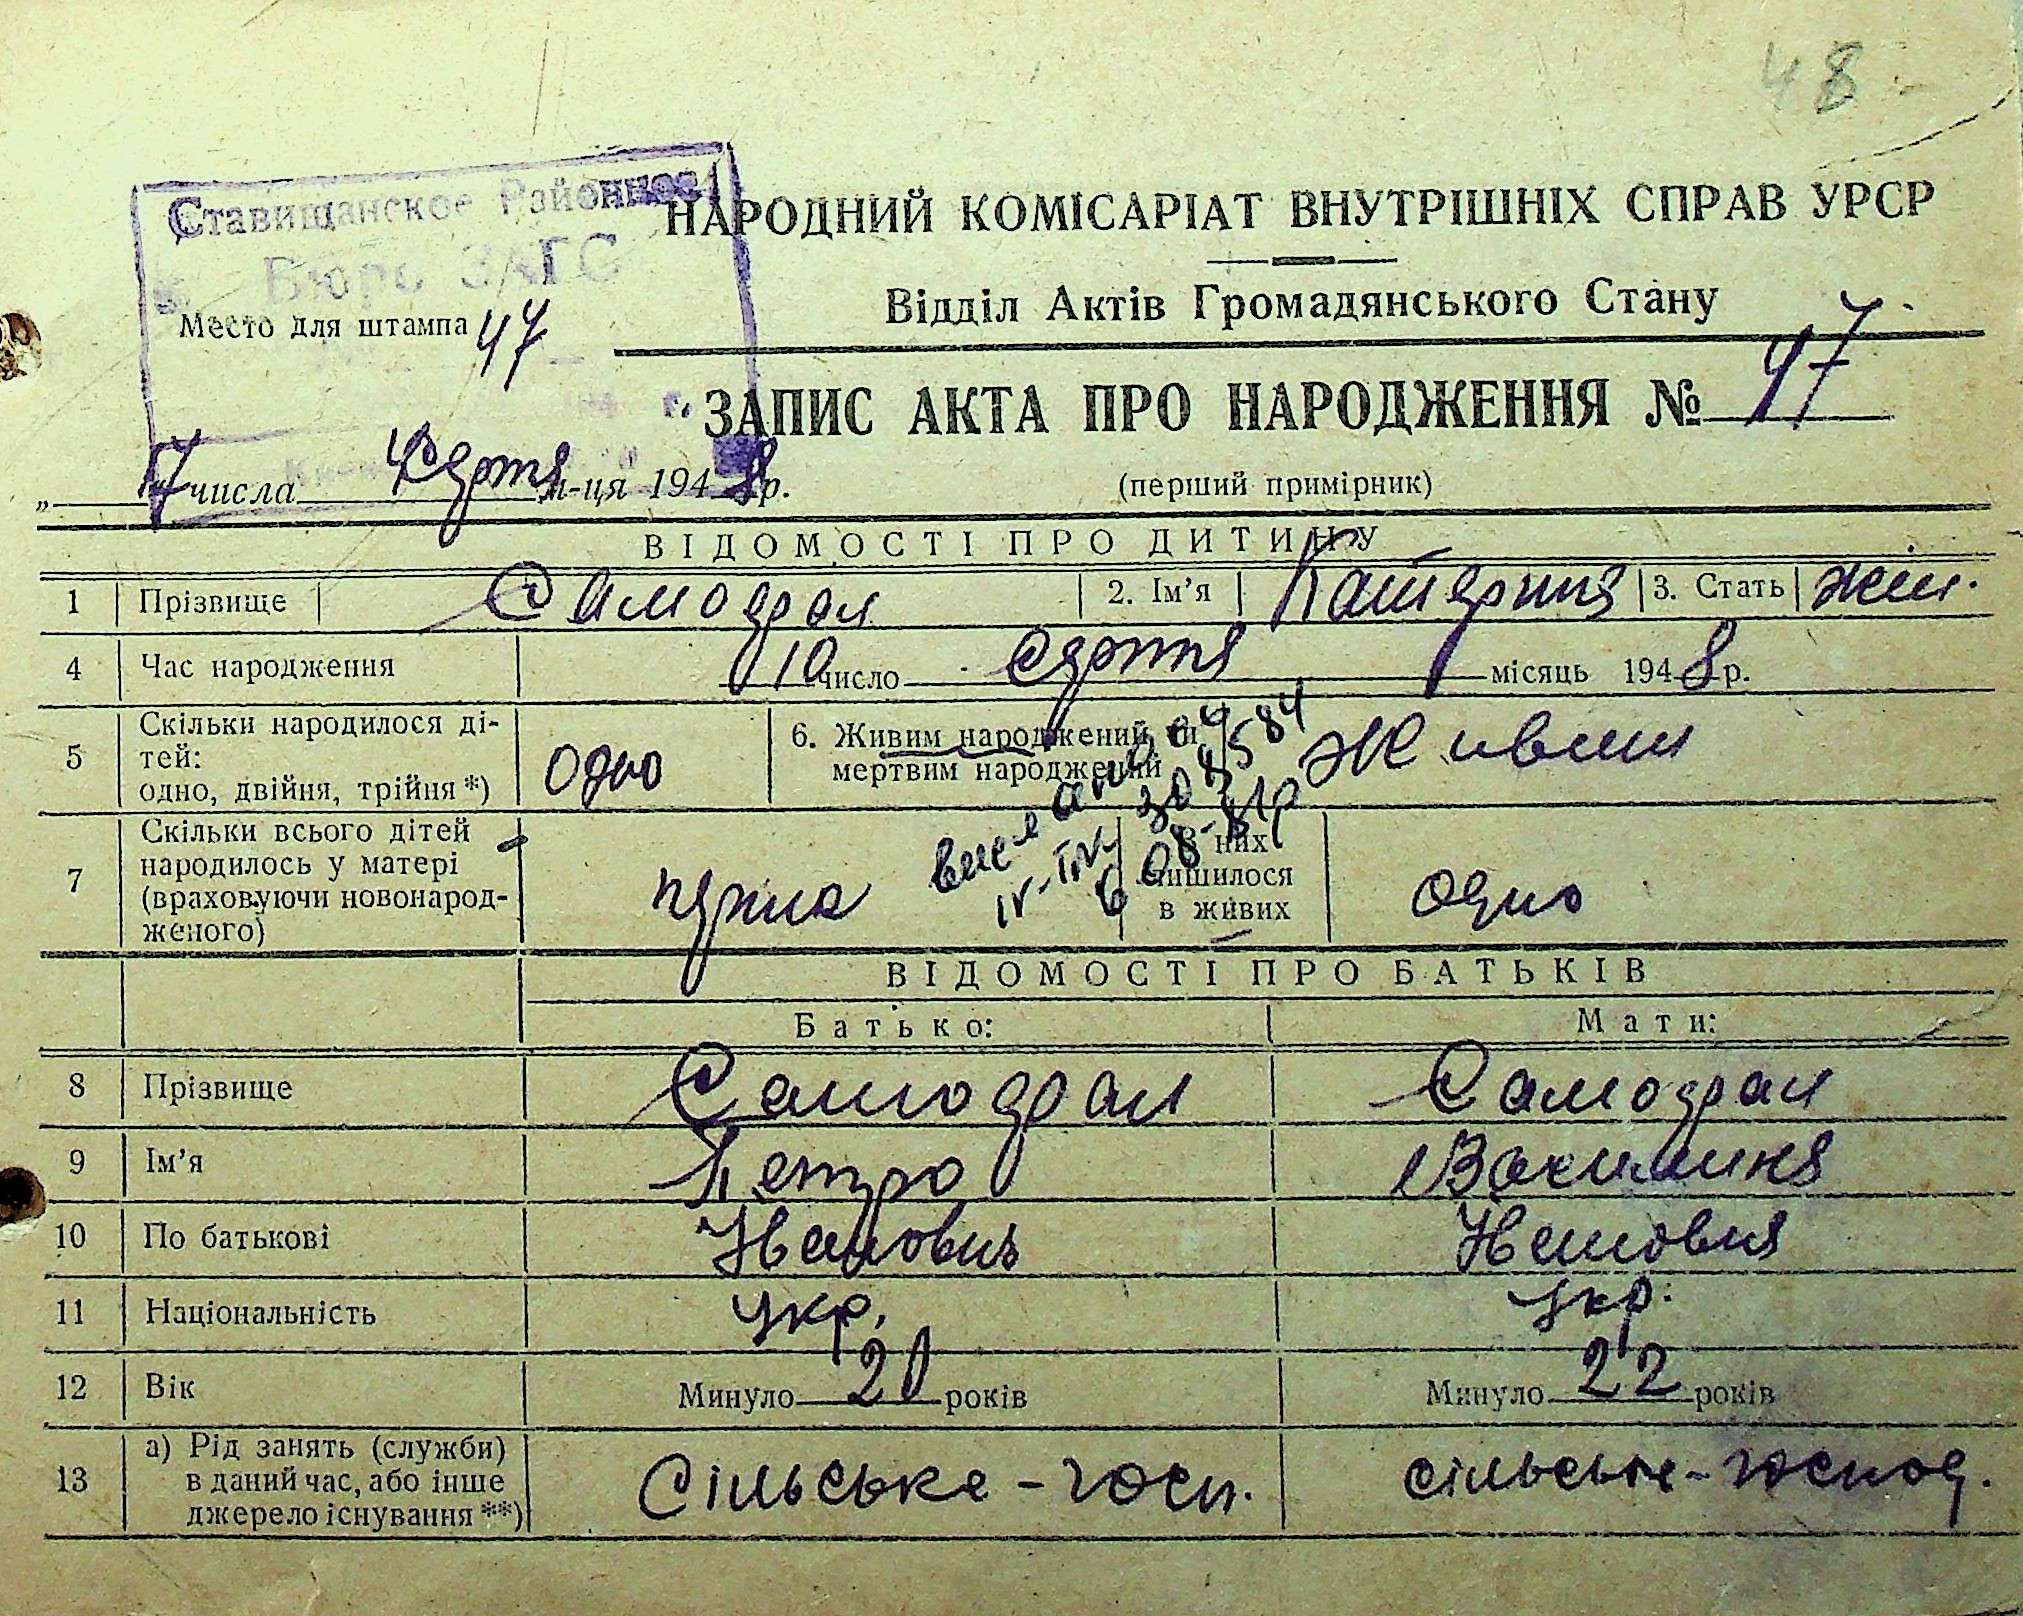 48
Ставищанское Районное
Бюро ЗАГС
НАРОДНИЙ КОМІСАРІАТ ВНУТРІШНІХ СПРАВ УРСР
Відділ Актів Громадянського Стану
Место для штампа 47
ЗАПИС АКТА ПРО НАРОДЖЕННЯ № 47
„ 17 числа Серпня м-ця 1948 р. (перший примірник)
ВІДОМОСТІ ПРО ДИТИНУ
1 Прізвище Самодрал 2. Ім’я Катерина 3. Стать жін.
4 Час народження 10 число серпня місяць 1948 р.
5 Скільки народилося ді-
тей:
одно, двійня, трійня *) одно 6. Живим народжений чи
мертвим народжений Живим
7 Скільки всього дітей
народилось у матері
(враховуючи новонарод-
женого) перша З них
лишилося
в живих одно
ВІДОМОСТІ ПРО БАТЬКІВ
Батько: Мати:
8 Прізвище Самодрал Самодрал
9 Ім’я Петро Василина
10 По батькові Іванович Івановна
11 Національність укр. укр.
12 Вік Минуло 20 років Минуло 22 років
13 а) Рід занять (служби)
в даний час, або інше
джерело існування **) Сільське-госп. сільське-господ.